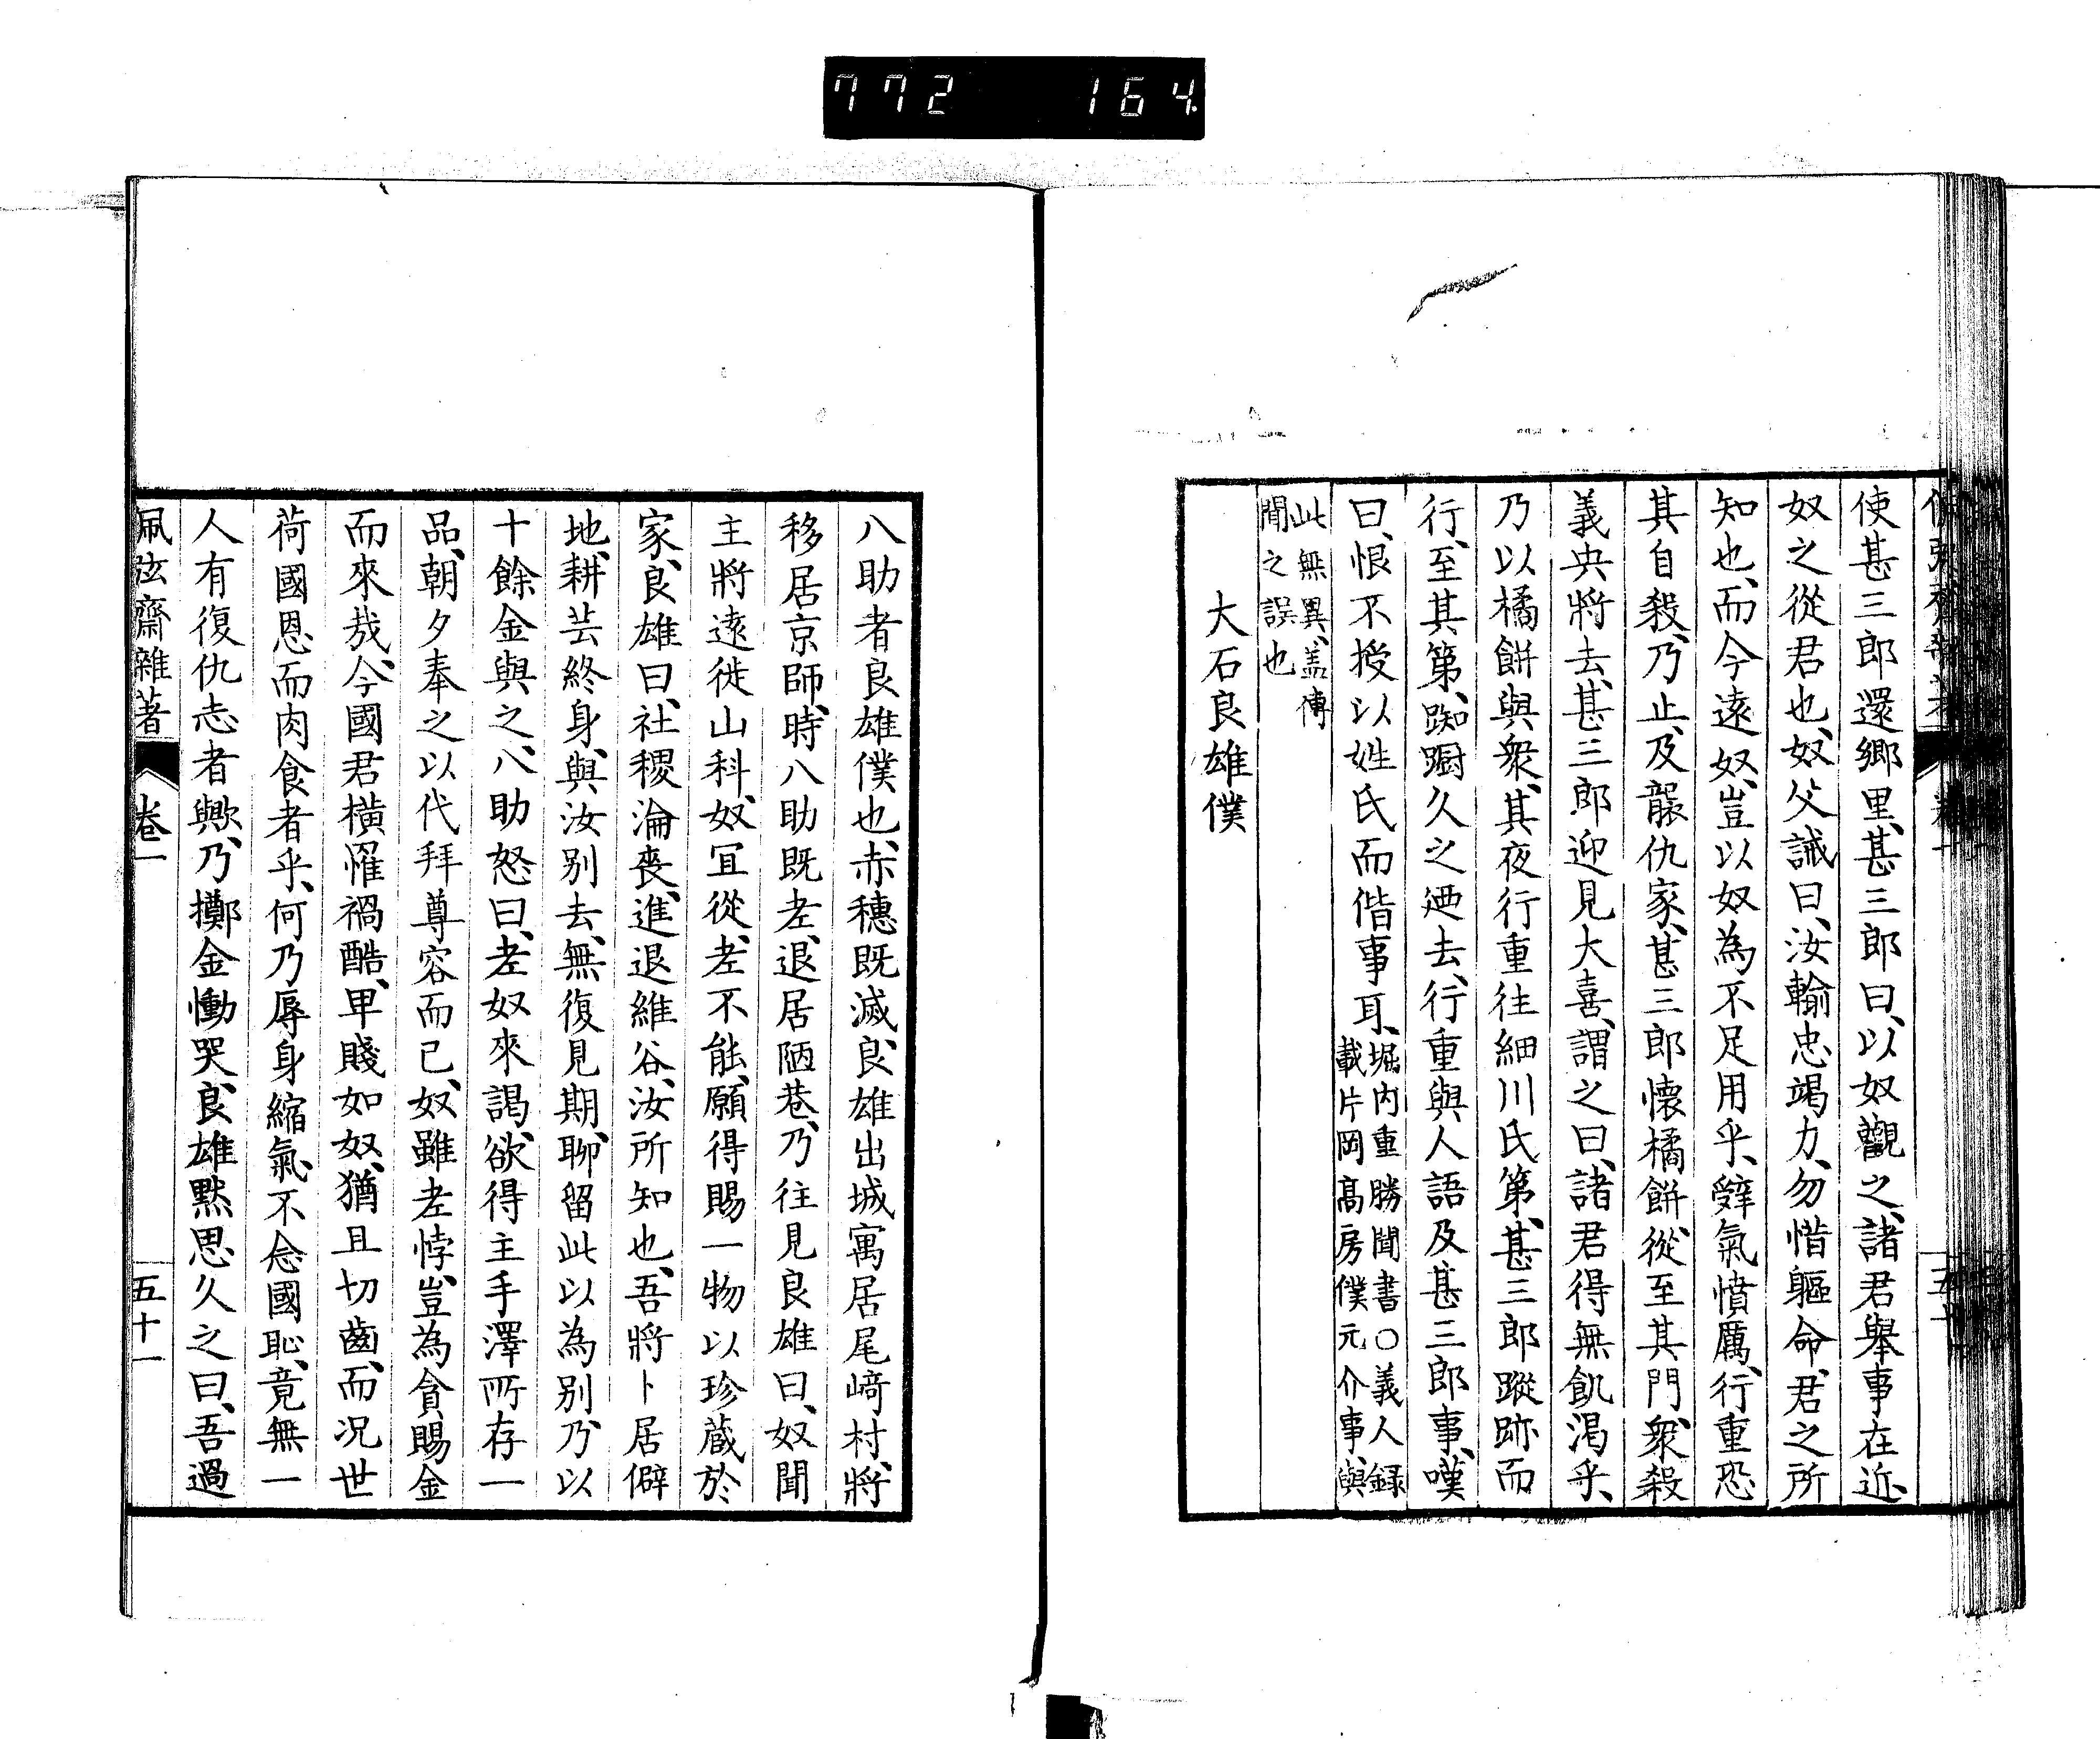 772 164
使甚三郎還鄉里、甚三郎曰、以奴觀之、諸君舉事在近、
奴之從君也、奴父誡曰、汝輸忠竭力、勿惜軀命、君之所
知也、而今遠奴、豈以奴為不足用乎、辭氣憤厲、行重恐
其自殺、乃止、及襲仇家、甚三郎懷橘餅、從至其門、衆殺
義央將去、甚三郎迎見大喜、謂之曰、諸君得無飢渴乎、
乃以橘餅與衆、其夜行重往細川氏第、甚三郎蹤跡而
行、至其第、踟蹰久之迺去、行重與人語及甚三郎事、嘆
曰、恨不授以姓氏而偕事耳、堀内重勝聞書○義人錄
載片岡高房僕元介事、與
此無異、盖傳
聞之誤也
大石良雄僕
八助者良雄僕也、赤穗既滅、良雄出城寓居尾﨑村、將
移居京師、時八助既老、退居陋巷、乃往見良雄曰、奴聞
主將遠徙山科、奴宜從、老不能、願得賜一物以珍蔵於
家、良雄曰、社稷淪喪、進退維谷、汝所知也、吾將卜居僻
地、耕芸終身、與汝别去、無復見期、聊留此以為别、乃以
十餘金與之、八助怒曰、老奴來謁、欲得主手澤所存一
品、朝夕奉之以代拜尊容而已、奴雖老悖、豈為貪賜金
而來哉、今國君橫罹禍酷、卑賤如奴、猶且切齒、而况世
荷國恩而肉食者乎、何乃辱身縮氣、不念國恥、竟無一
人有復仇志者歟、乃擲金慟哭、良雄默思久之曰、吾過
佩弦齋雜著 卷一 五十一